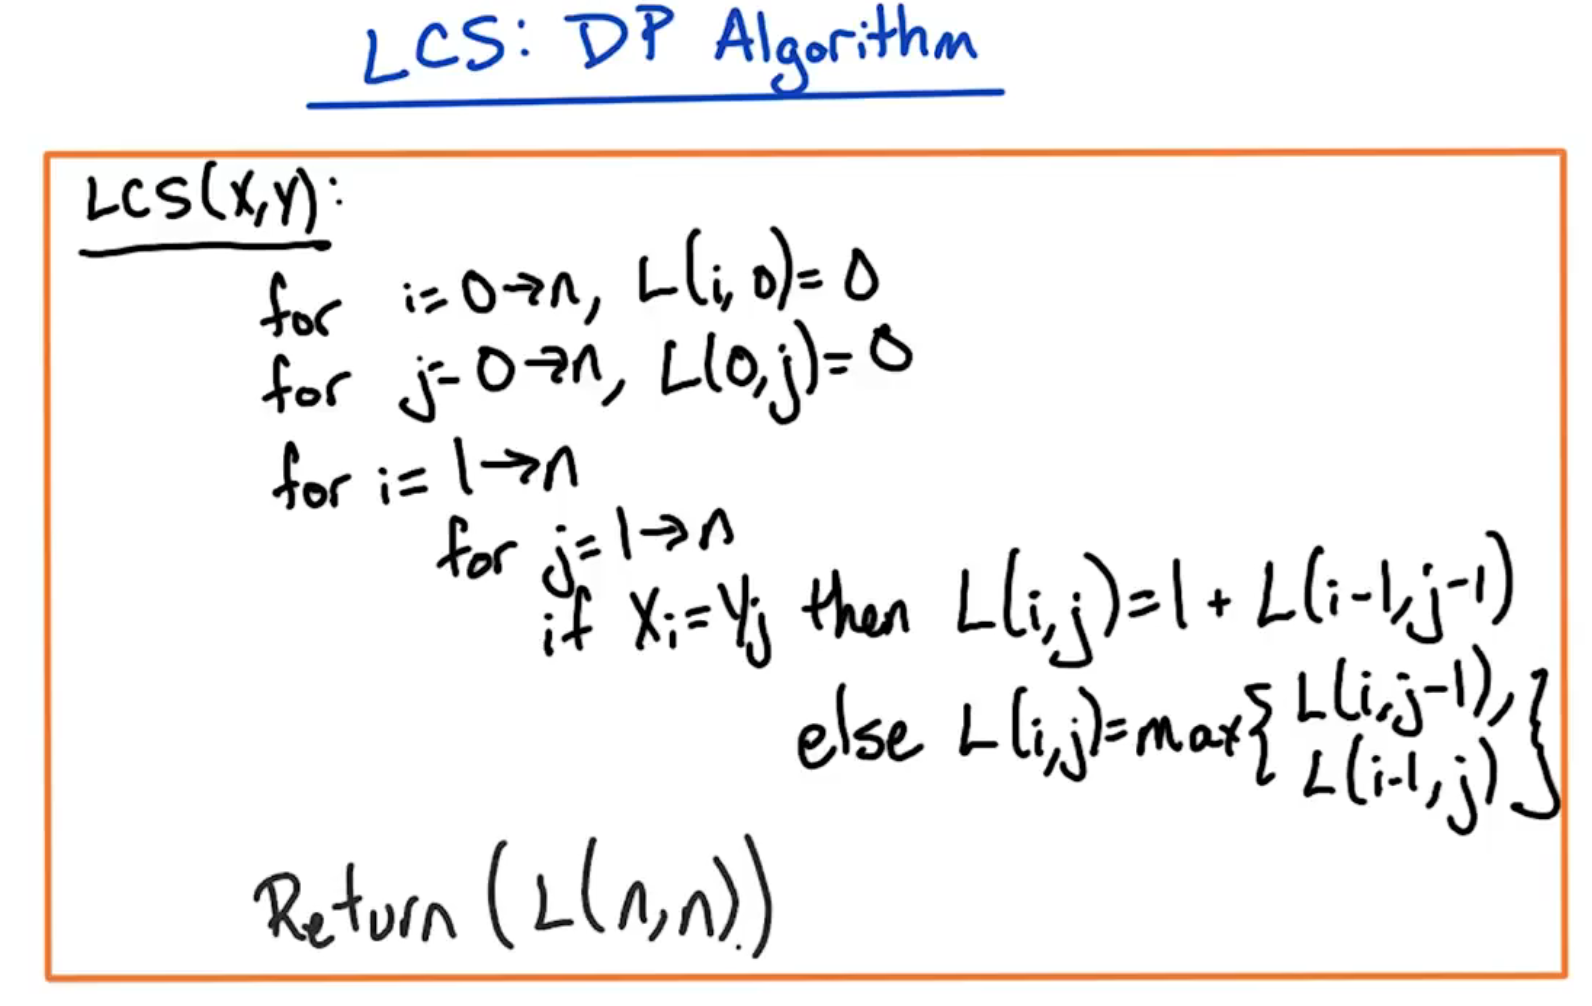 LCS: DP Algorithm
LCS(X,Y):
for i=0→n, L(i,0)=0
for j=0→n, L(0,j)=0
for i=1→n
for j=1→n
if Xi=Yj then L(i,j)=1+L(i-1,j-1)
else L(i,j)=max{L(i,j-1),
L(i-1,j)}
Return(L(n,n))